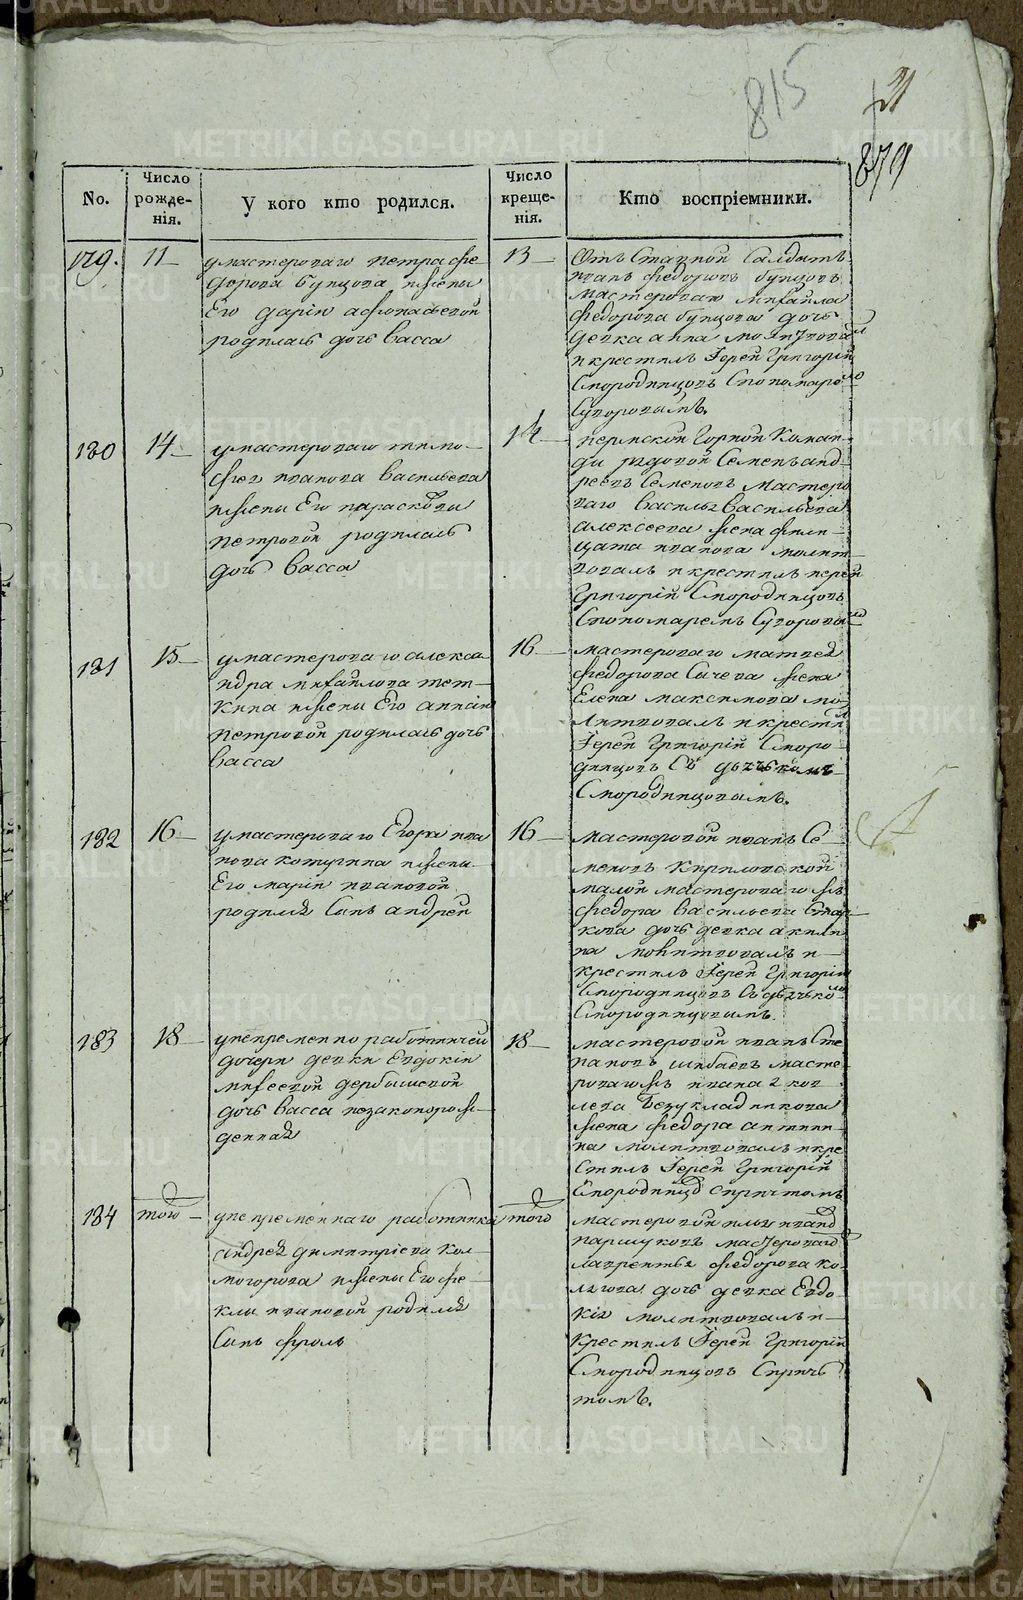 815
21
879
No.
Число рожде-нія.
У кого кто родился.
Число креще-нія.
Кто воспріемники.
179.
11
умастероваго петра фе
дорова бунцова жены
Его даріи афонасьевой
родилась дочь васса
13
Отъставной Салдатъ
иванъ федоровъ бунцовъ
мастероваго михайла
федорова бунцова дочь
девка анна молитвовал
икрестилъ Іерей Григорій
Смородинцовъ Спономаро
Суворовымъ.
180
14
умастероваго тимо-
фея иванова васильева
жены Его парасковьи
петровой родилась
дочь васса
14
пермской Горной Коман-
ды рядовой Семенъ анд-
реевъ Семеновъ мастеро
ваго василья васильева
алексеева жена фили-
цата иванова молит-
вовалъ икрестилъ иерей
Григорій Смородинцовъ
Спономаремъ Суворовы
181
15
умастероваго алекса
ндра михайлова тет-
кина жены Его анисии
петровой родилась дочь
васса
16
мастероваго матвея
федорова Сычева жена
Елена максимова мо-
литвовалъ икрестил
Іерей Григорій Сморо-
динцовъ Съ дьячькомъ
Смородинцовымъ.
182
16
умастероваго Егора ива
нова котугина жены
Его маріи ивановой
родился Сынъ андрей
16
мастеровой иванъ Се
меновъ Кириловской
малой мастероваго жъ
федора васильева Стар-
кова дочь девка акили
на молитвовалъ и-
крестилъ Іерей Григоріи
Смородинцовъ Содьячько
Смородинцовымъ.
183
18
унепременно работничей
дочери девки Евдокіи
михеевой дербышевой
дочь васса незаконорож-
денная
18
мастеровой иванъ Сте
пановъ шибаевъ масте-
роваго жъ ивана 2 яков
лева безукладникова
жена федора антипи-
на молитвовалъ икре
стилъ Іерей Григорій
Смородинцо спричтомъ
184
того
унепременнаго работника
андрея димитріева кол-
могорова жены Его фе-
клы ивановой родился
Сынъ фролъ
того
мастеровой илья иванд
паршуковъ мастероваго
лаврентья федорова ко-
лыгова дочь девка Евдо-
кія молитвовалъ и-
крестилъ Іерей Григорій
Смородинцовъ Спричь
томъ.
METRIKI.GASO-URAL.RU